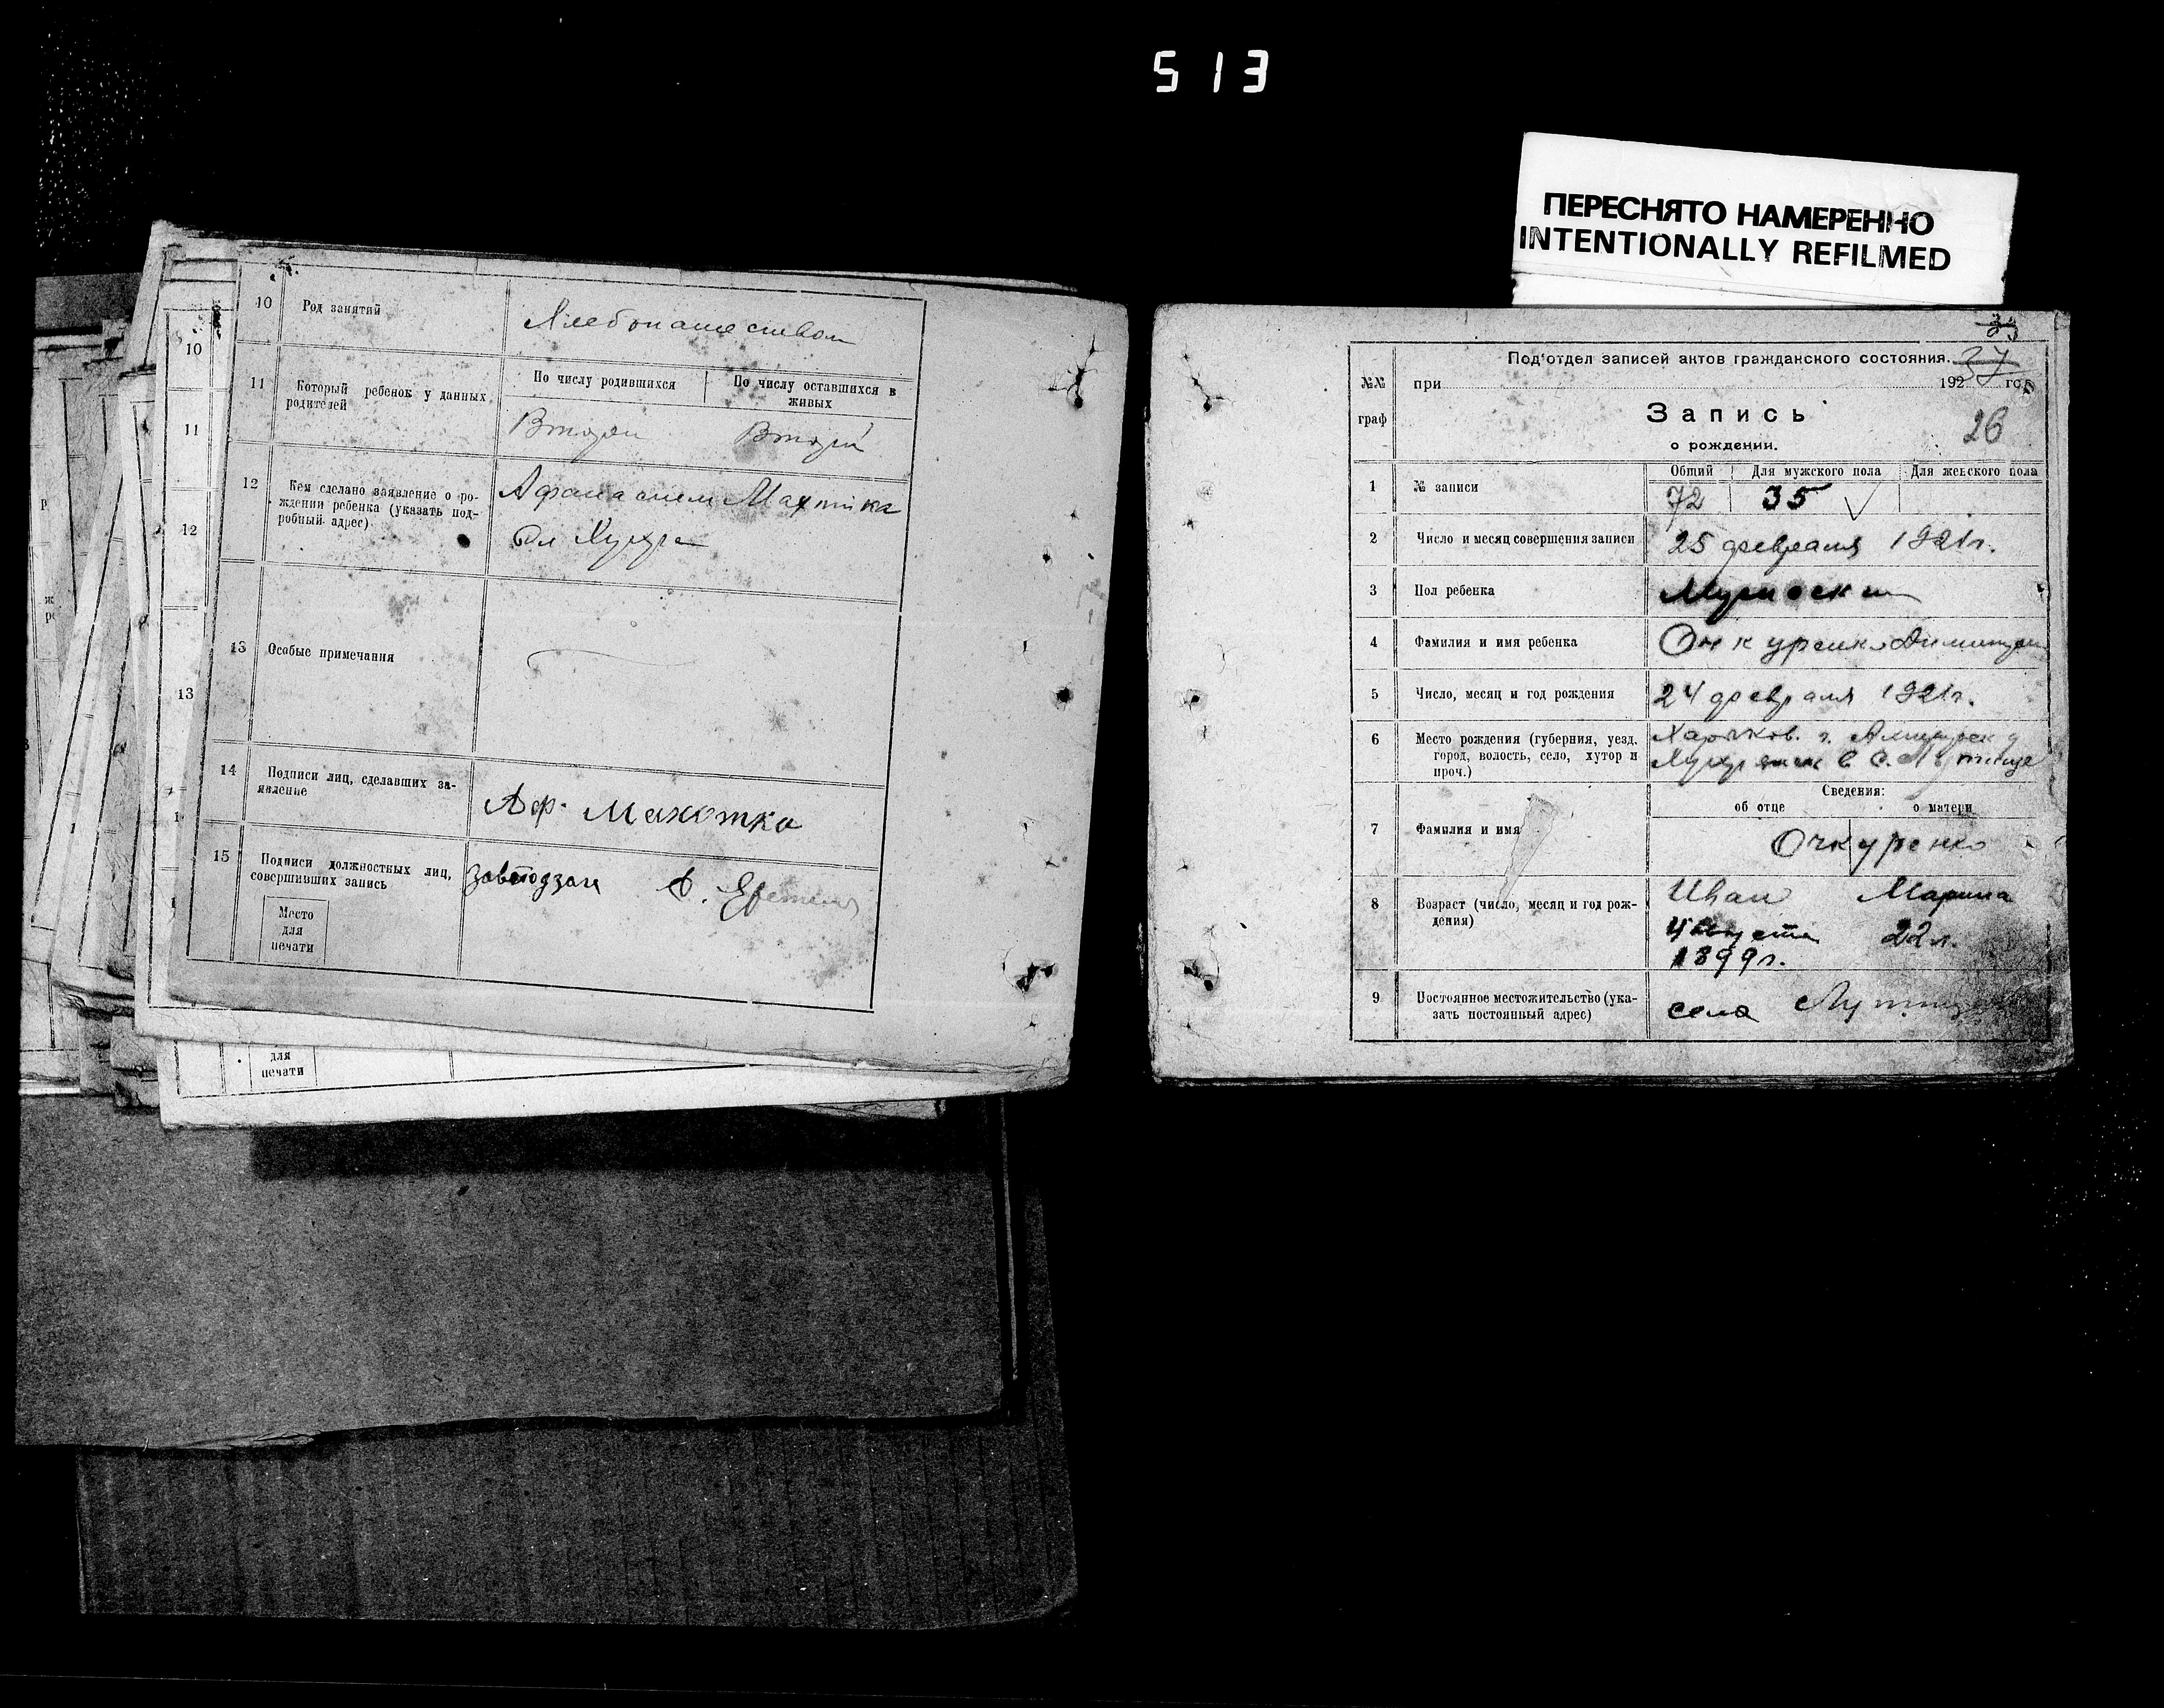 513
ПЕРЕСНЯТО НАМЕРЕННО
INTENTIONALLY REFILMED
10 Род занятий
Хлебопашеством
11 Который ребенок у данных
родителей
По числу родившихся
По числу оставшихся в
живых
Второй
Второй
12 Кем сделано заявление о ро-
ждении ребенка (указать под-
робный адрес)
13 Особые примечания
14 Подписи лиц, сделавших за-
явление
Аф. Махотка
15 Подписи должностных лиц,
совершивших запись
Место
для
печати
10
11
12
13
для
печати
Под'отдел записей актов гражданского состояния.
37
№№
граф
при 192 год
Запись
26
о рождении.
Общий Для мужского пола Для женского пола
1 № записи
72 35
2 Число и месяц совершения записи
25 февраля 1921г.
3 Пол ребенка
Мужоски
4 Фамилия и имя ребенка
5 Число, месяц и год рождения
24 февраля 1921г.
6 Место рождения (губерния, уезд,
город, волость, село, хутор и
проч.)
Харьков. г.
Сведения:
об отце о матери
7 Фамилия и имя
Очкуренко
8 Возраст (число, месяц и год рож-
дения)
Иван Марина
4 Августа 22 л.
1899г.
9 Постоянное местожительство (ука-
зать постоянный адрес)
село